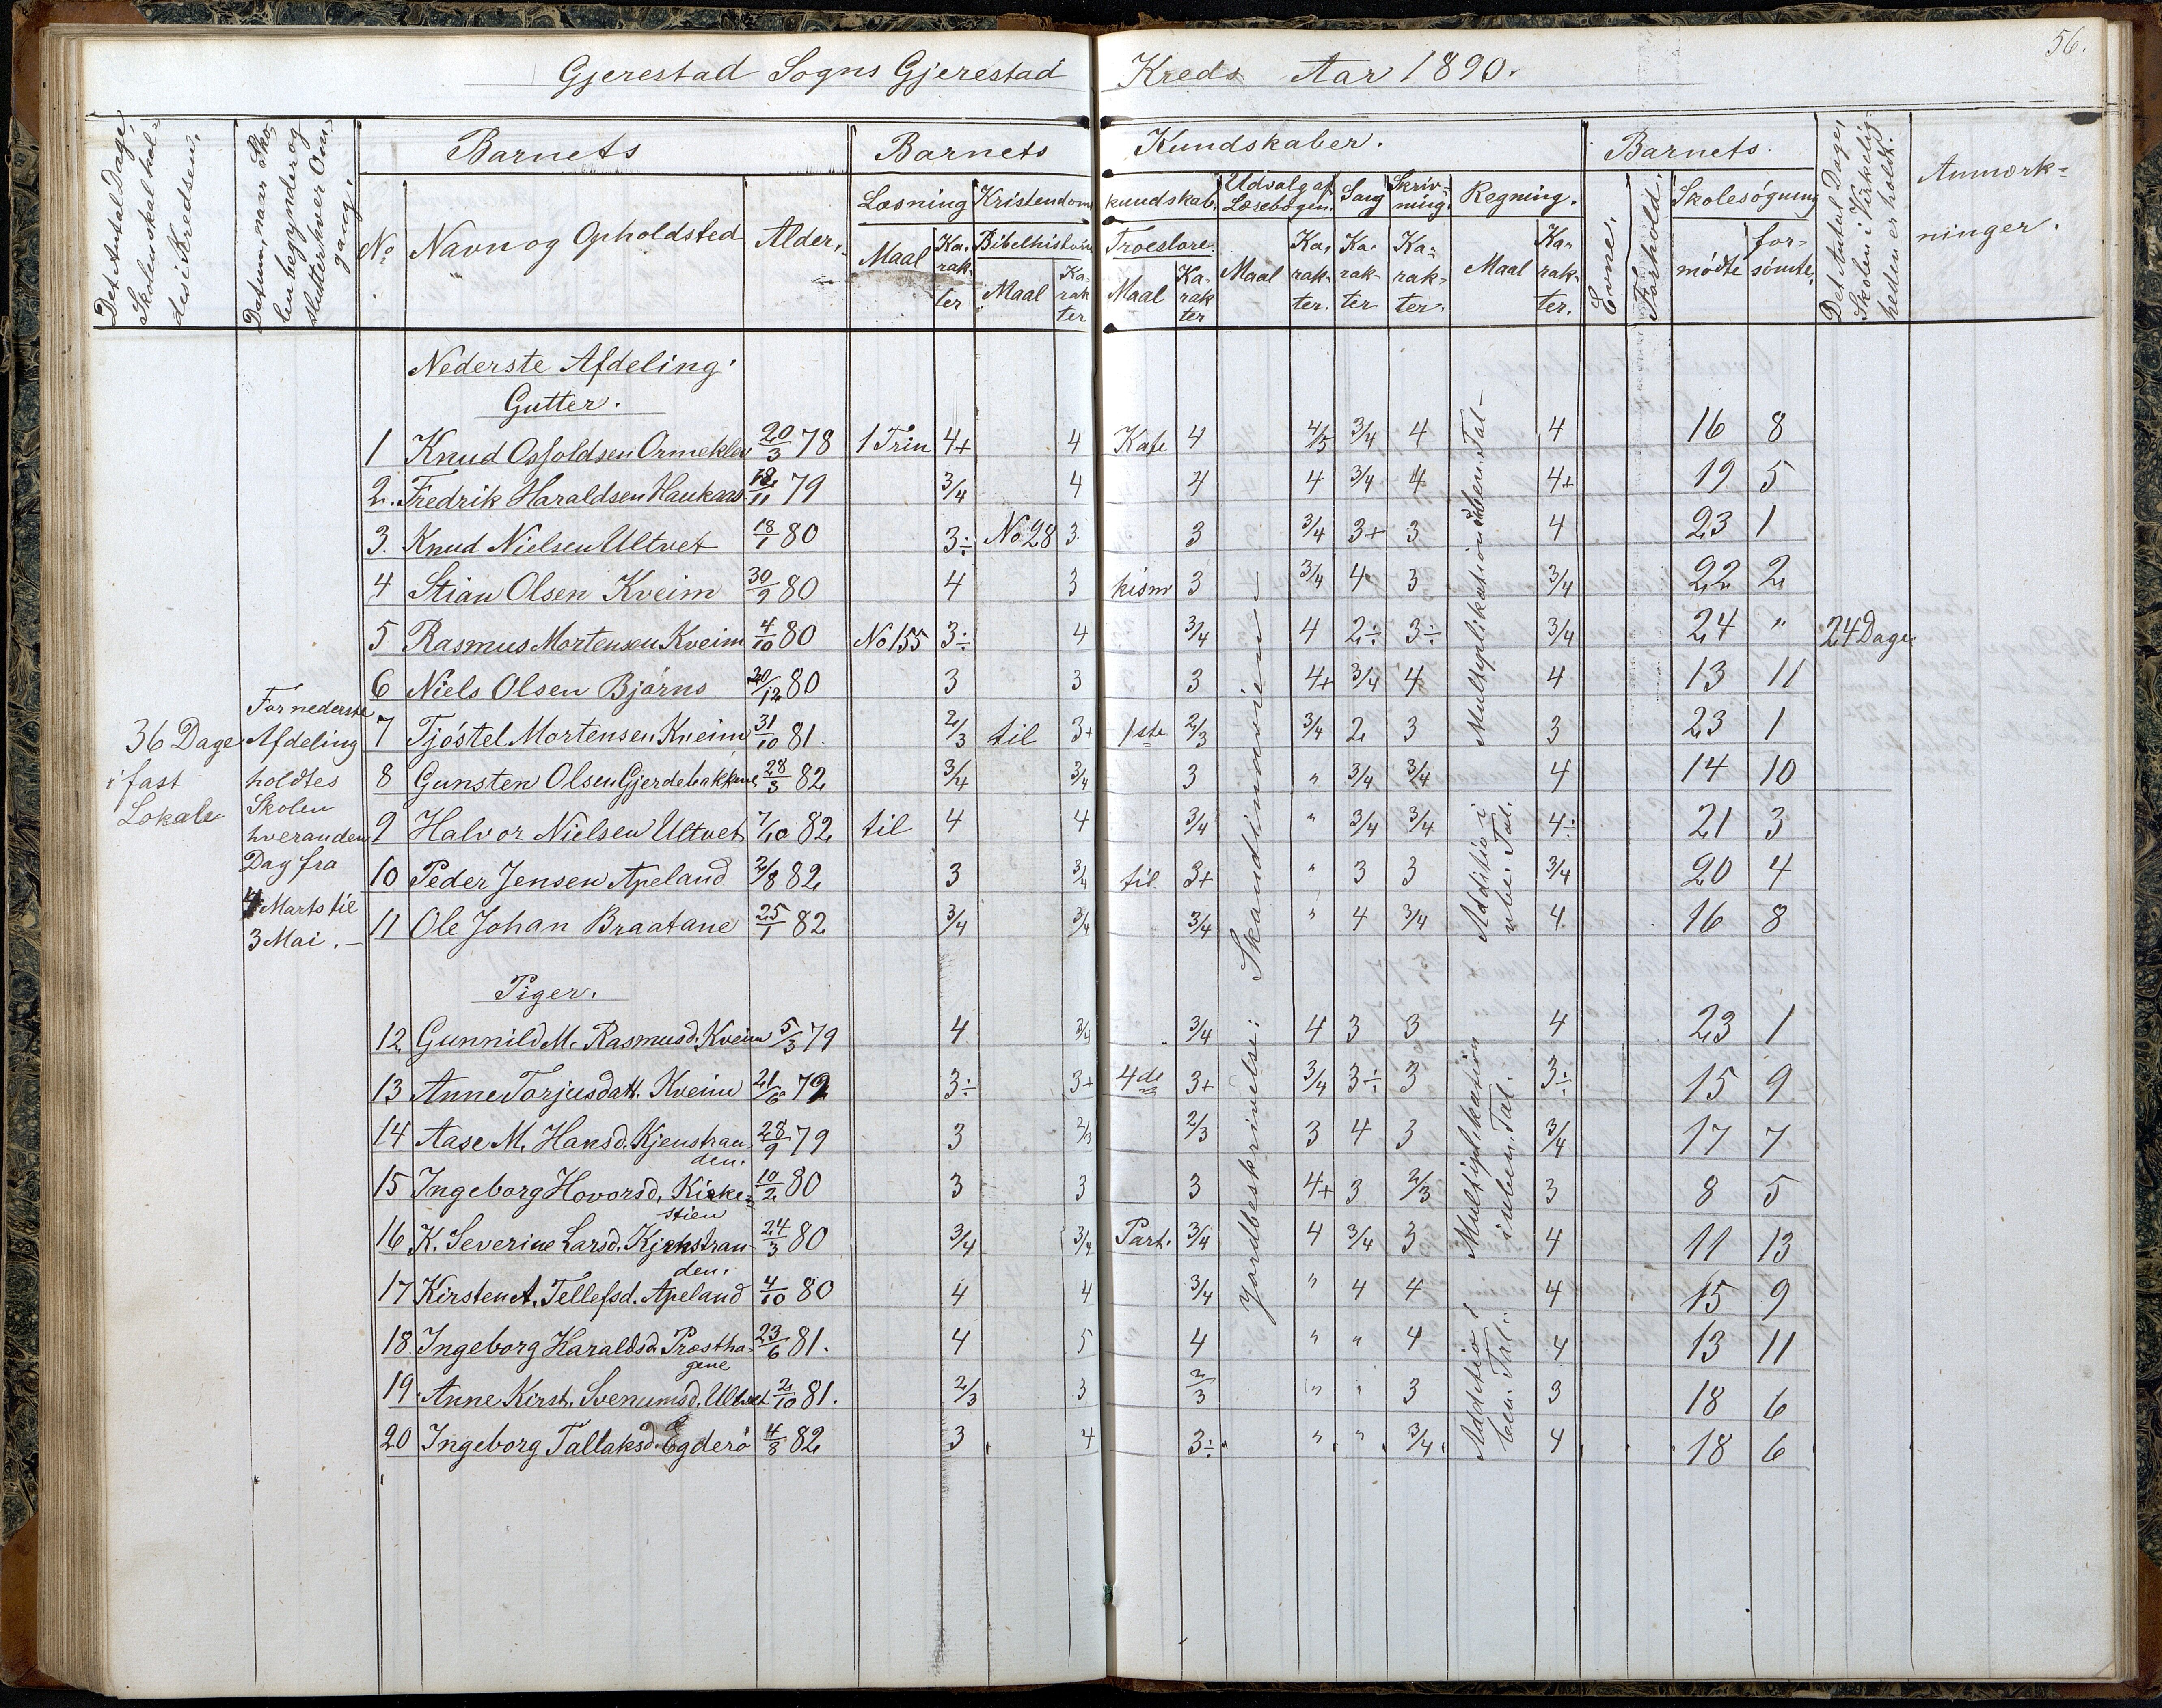 56.
Gjerestad Sogns Gjerestad Kreds Aar 1890.
Det Antal Dage, Skolen skal holdes i Kredsen.
Datum, naar Skolen begynder og slutter hver Omgang.
Barnets
Barnets Kundskaber.
Barnets
Det Antal Dage, Skolen i Virkeligheden er holdt.
Anmærkninger.
No
Navn og Opholdsted
Alder.
Læsning
Kristendomskundskab.
Udvalg af Læsebogen.
Sang
Skrivning.
Regning.
Evne.
Forhold.
Skolesøgning
Maal
Karakter
Bibelhistorie
Maal
Karakter
Troeslære
Maal
Karakter
Maal
Karakter.
Karakter
Karakter.
Maal
Karakter.
mødte
forsømte.
36 Dage i fast Lokale
For nederste Afdeling holdtes Skolen hveranden Dag fra 4 Marts til 3 Mai. —
Nederste Afdeling.
Gutter.
1 Knud Osfoldsen Ormeklev 20/3 78 1 Trin 4+ 4 Kate 4 4/5 3/4 4 4 16 8
2. Fredrik Haraldsen Haukaas 18/11 79 3/4 4 4 4 3/4 4 4+ 19 5
3. Knud Nielsen Ultvet 18/1 80 3÷ No 28 3. 3 3/4 3+ 3 4 23 1
4 Stian Olsen Kveim 30/9 80 4 3 kism 3 3/4 4 3 3/4 22 2
5 Rasmus Mortensen Kveim 4/10 80 No 155 3÷ 4 3/4 4 2÷ 3÷ 3/4 24 " 24 Dage
6 Niels Olsen Bjørns 20/12 80 3 3 3 4+ 3/4 4 4 13 11
7 Tjøstel Mortensen Kveim 31/10 81. 2/3 til 3+ 1ste 2/3 3/4 2 3 3 23 1
8 Gunsten Olsen Gjerdebakkene 28/3 82 3/4 3/4 3 " 3/4 3/4 4 14 10
9 Halvor Nielsen Ultvet 7/10 82 til 4 4 3/4 " 3/4 3/4 4÷ 21 3
10 Peder Jensen Apeland 2/8 82 3 3/4 til 3+ " 3 3 3/4 20 4
11 Ole Johan Braatane 25/1 82 3/4 3/4 3/4 " 4 3/4 4 16 8
Piger.
12 Gunnild M. Rasmusd. Kveim 5/3 79 4 3/4 3/4 4 3 3 4 23 1
13 Anne Torjusdatt. Kveim 21/6 79 3÷ 3+ 4de 3+ 3/4 3÷ 3 3÷ 15 9
14 Aase M. Hansd. Kjenstranden. 28/9 79 3 2/3 2/3 3 4 3 3/4 17 7
15 Ingeborg Hovorsd. Kirkestien 10/2 80 3 3 3 4+ 3 2/3 3 8 5
16 K. Severine Larsd. Kjenstranden. 24/3 80 3/4 3/4 Part. 3/4 4 3/4 3 4 11 13
17 Kirsten A. Tellefsd. Apeland 4/10 80 4 4 3/4 " 4 4 4 15 9
18. Ingeborg Haraldsd. Prosthagene 23/6 81. 4 5 4 " " 4 4 13 11
19. Anne Kirst. Svenumsd. Ultvet 2/10 81. 2/3 3 2/3 " " 3 3 18 6
20 Ingeborg Tallaksd. Egderø 4/8 82 3 4 3÷ " " 3/4 4 18 6
Jordbeskrivelse: Skandinavien —
Multiplikation i uben. Tal —
Addition i ube. Tal.
Multiplikation i uben. Tal.
Addition i ben. Tal.